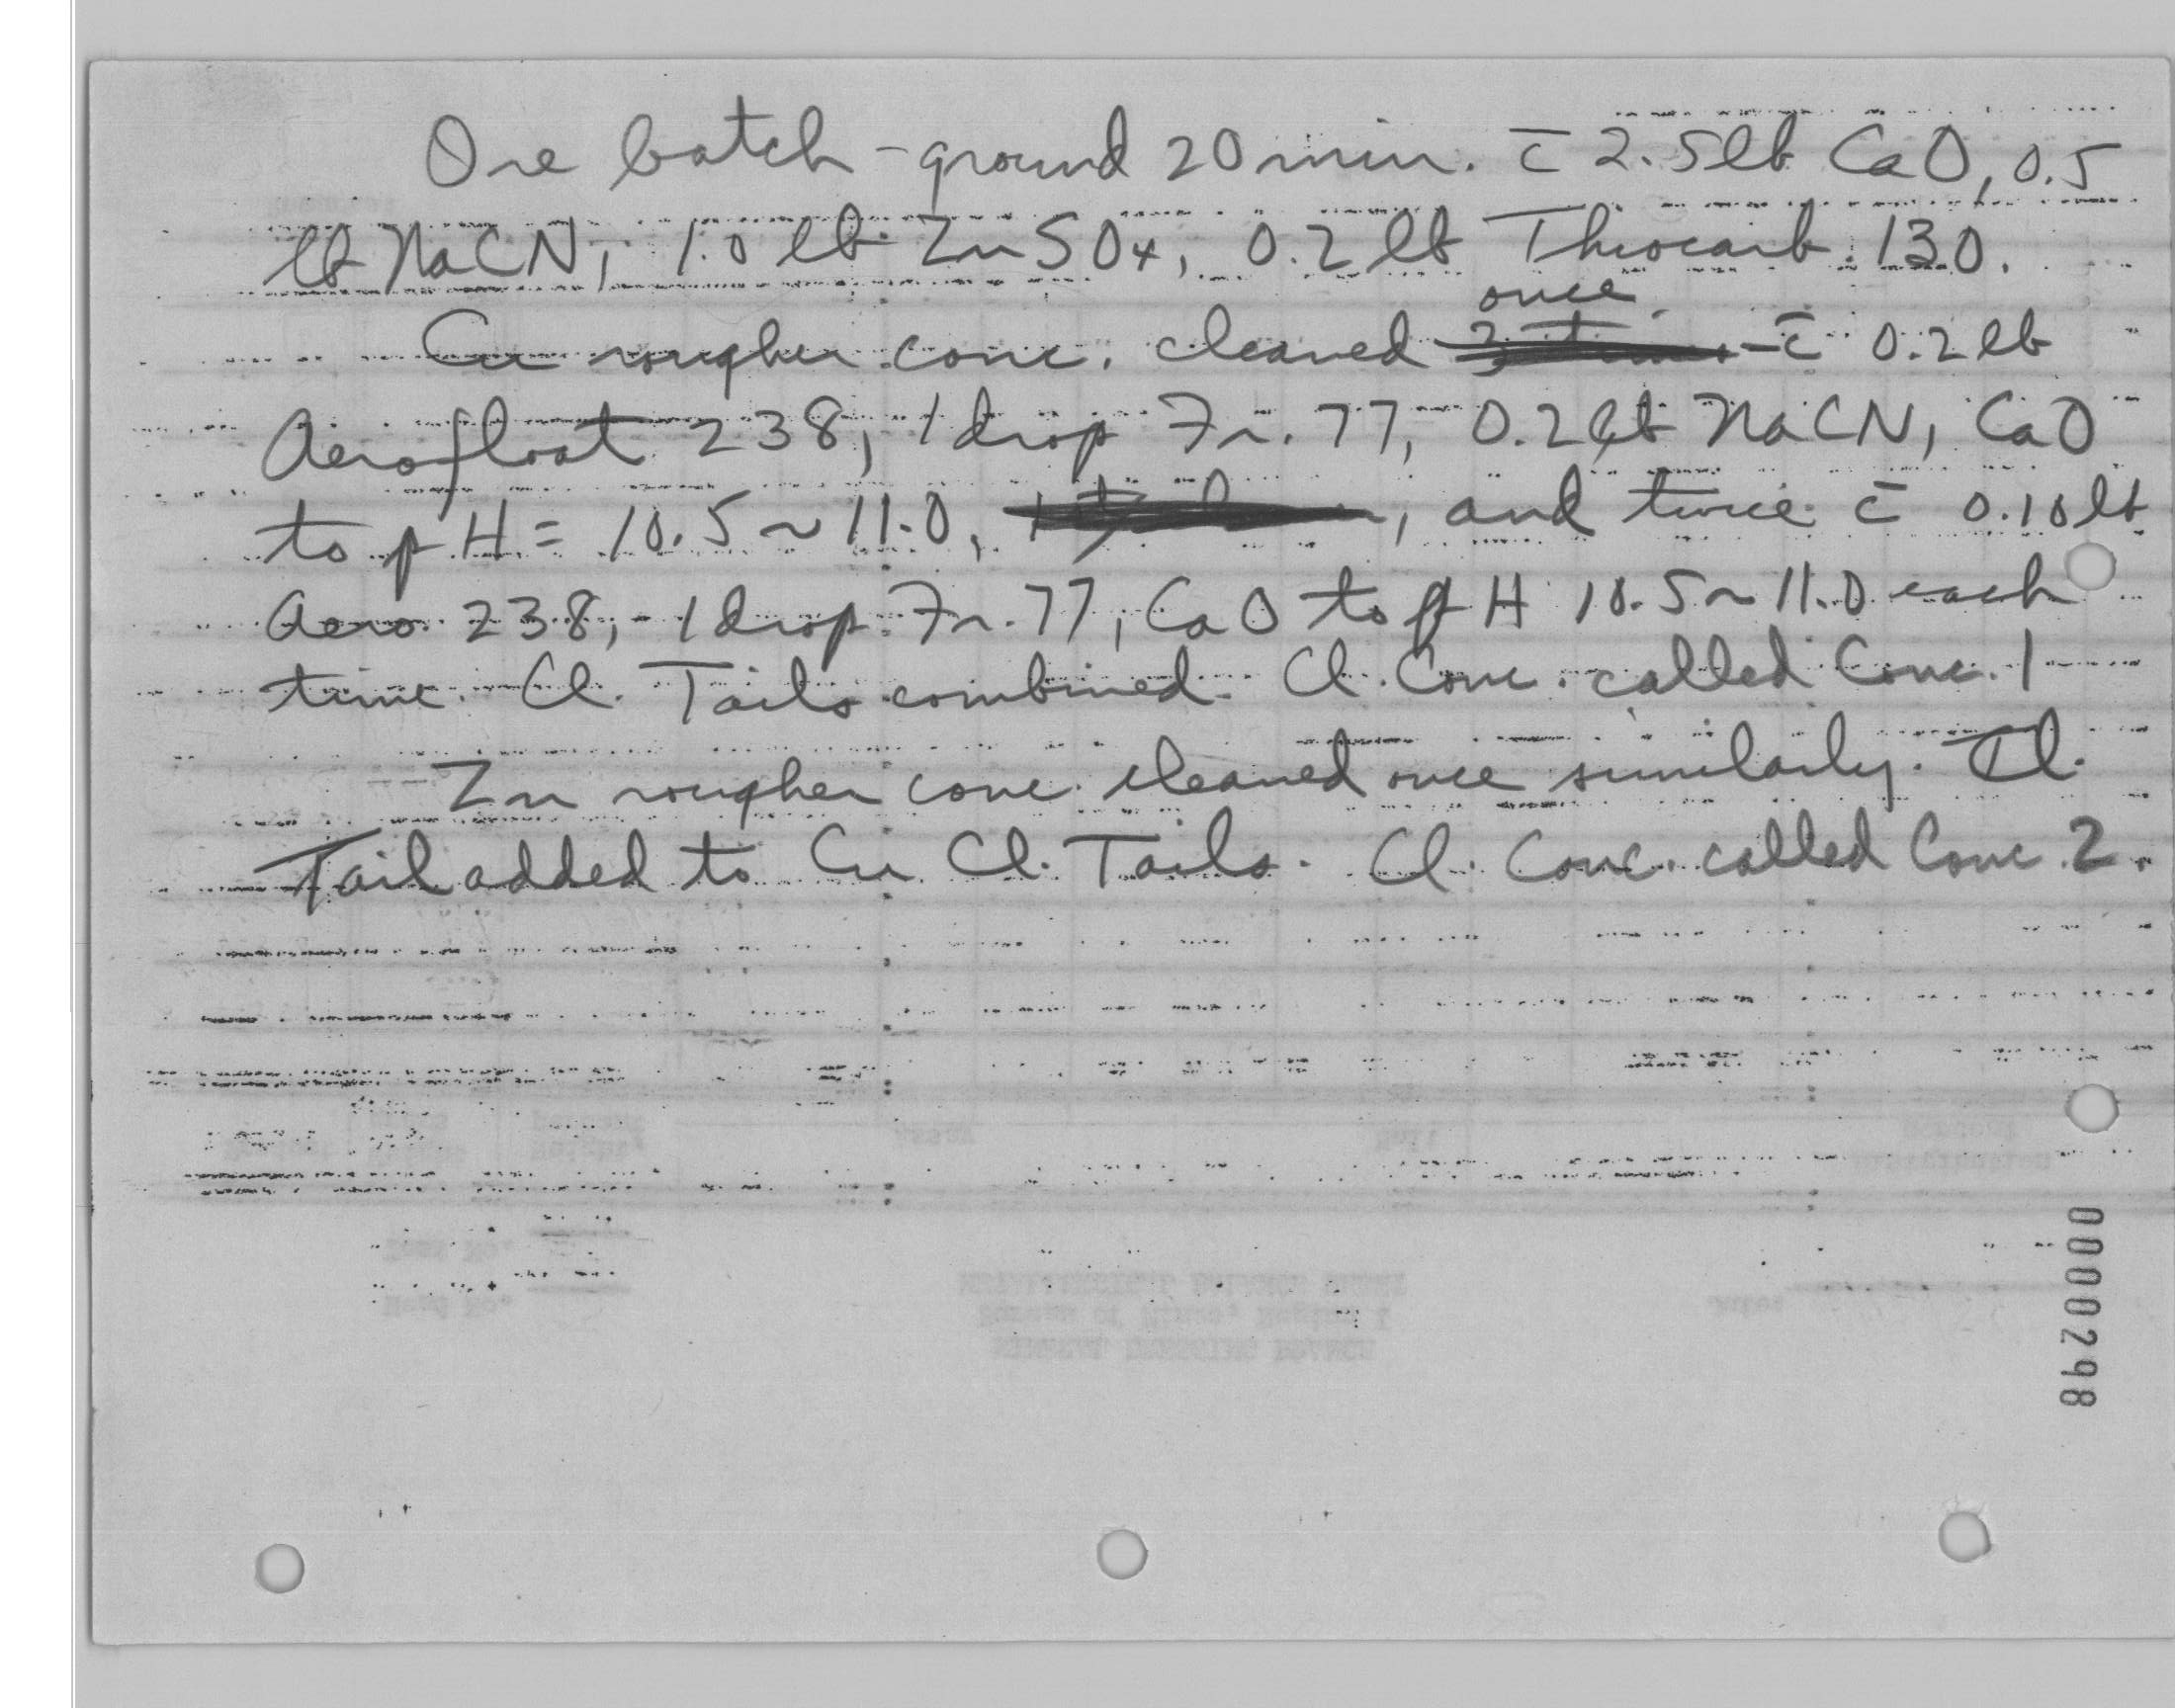 One batch - ground 20 min. c̄ 2.5 lb CaO, 0.5
lb NaCN, 1.0 lb ZnSO4, 0.2 lb Thiocarb. 130.
once
Cu rougher conc. cleaned c̄ 0.2 lb
Aerofloat 238, 1 drop Fr. 77, 0.2 lb NaCN, CaO
to pH = 10.5 ~ 11.0, , and twice c̄ 0.10 lb
Aero 238, 1 drop Fr. 77, CaO to pH 10.5 ~ 11.0 each
time. Cl. Tails combined. Cl. Conc. called Conc. 1
Zn rougher conc. cleaned once similarly. Cl.
Tail added to Cu Cl. Tails. Cl. Conc. called Conc 2.
0000298